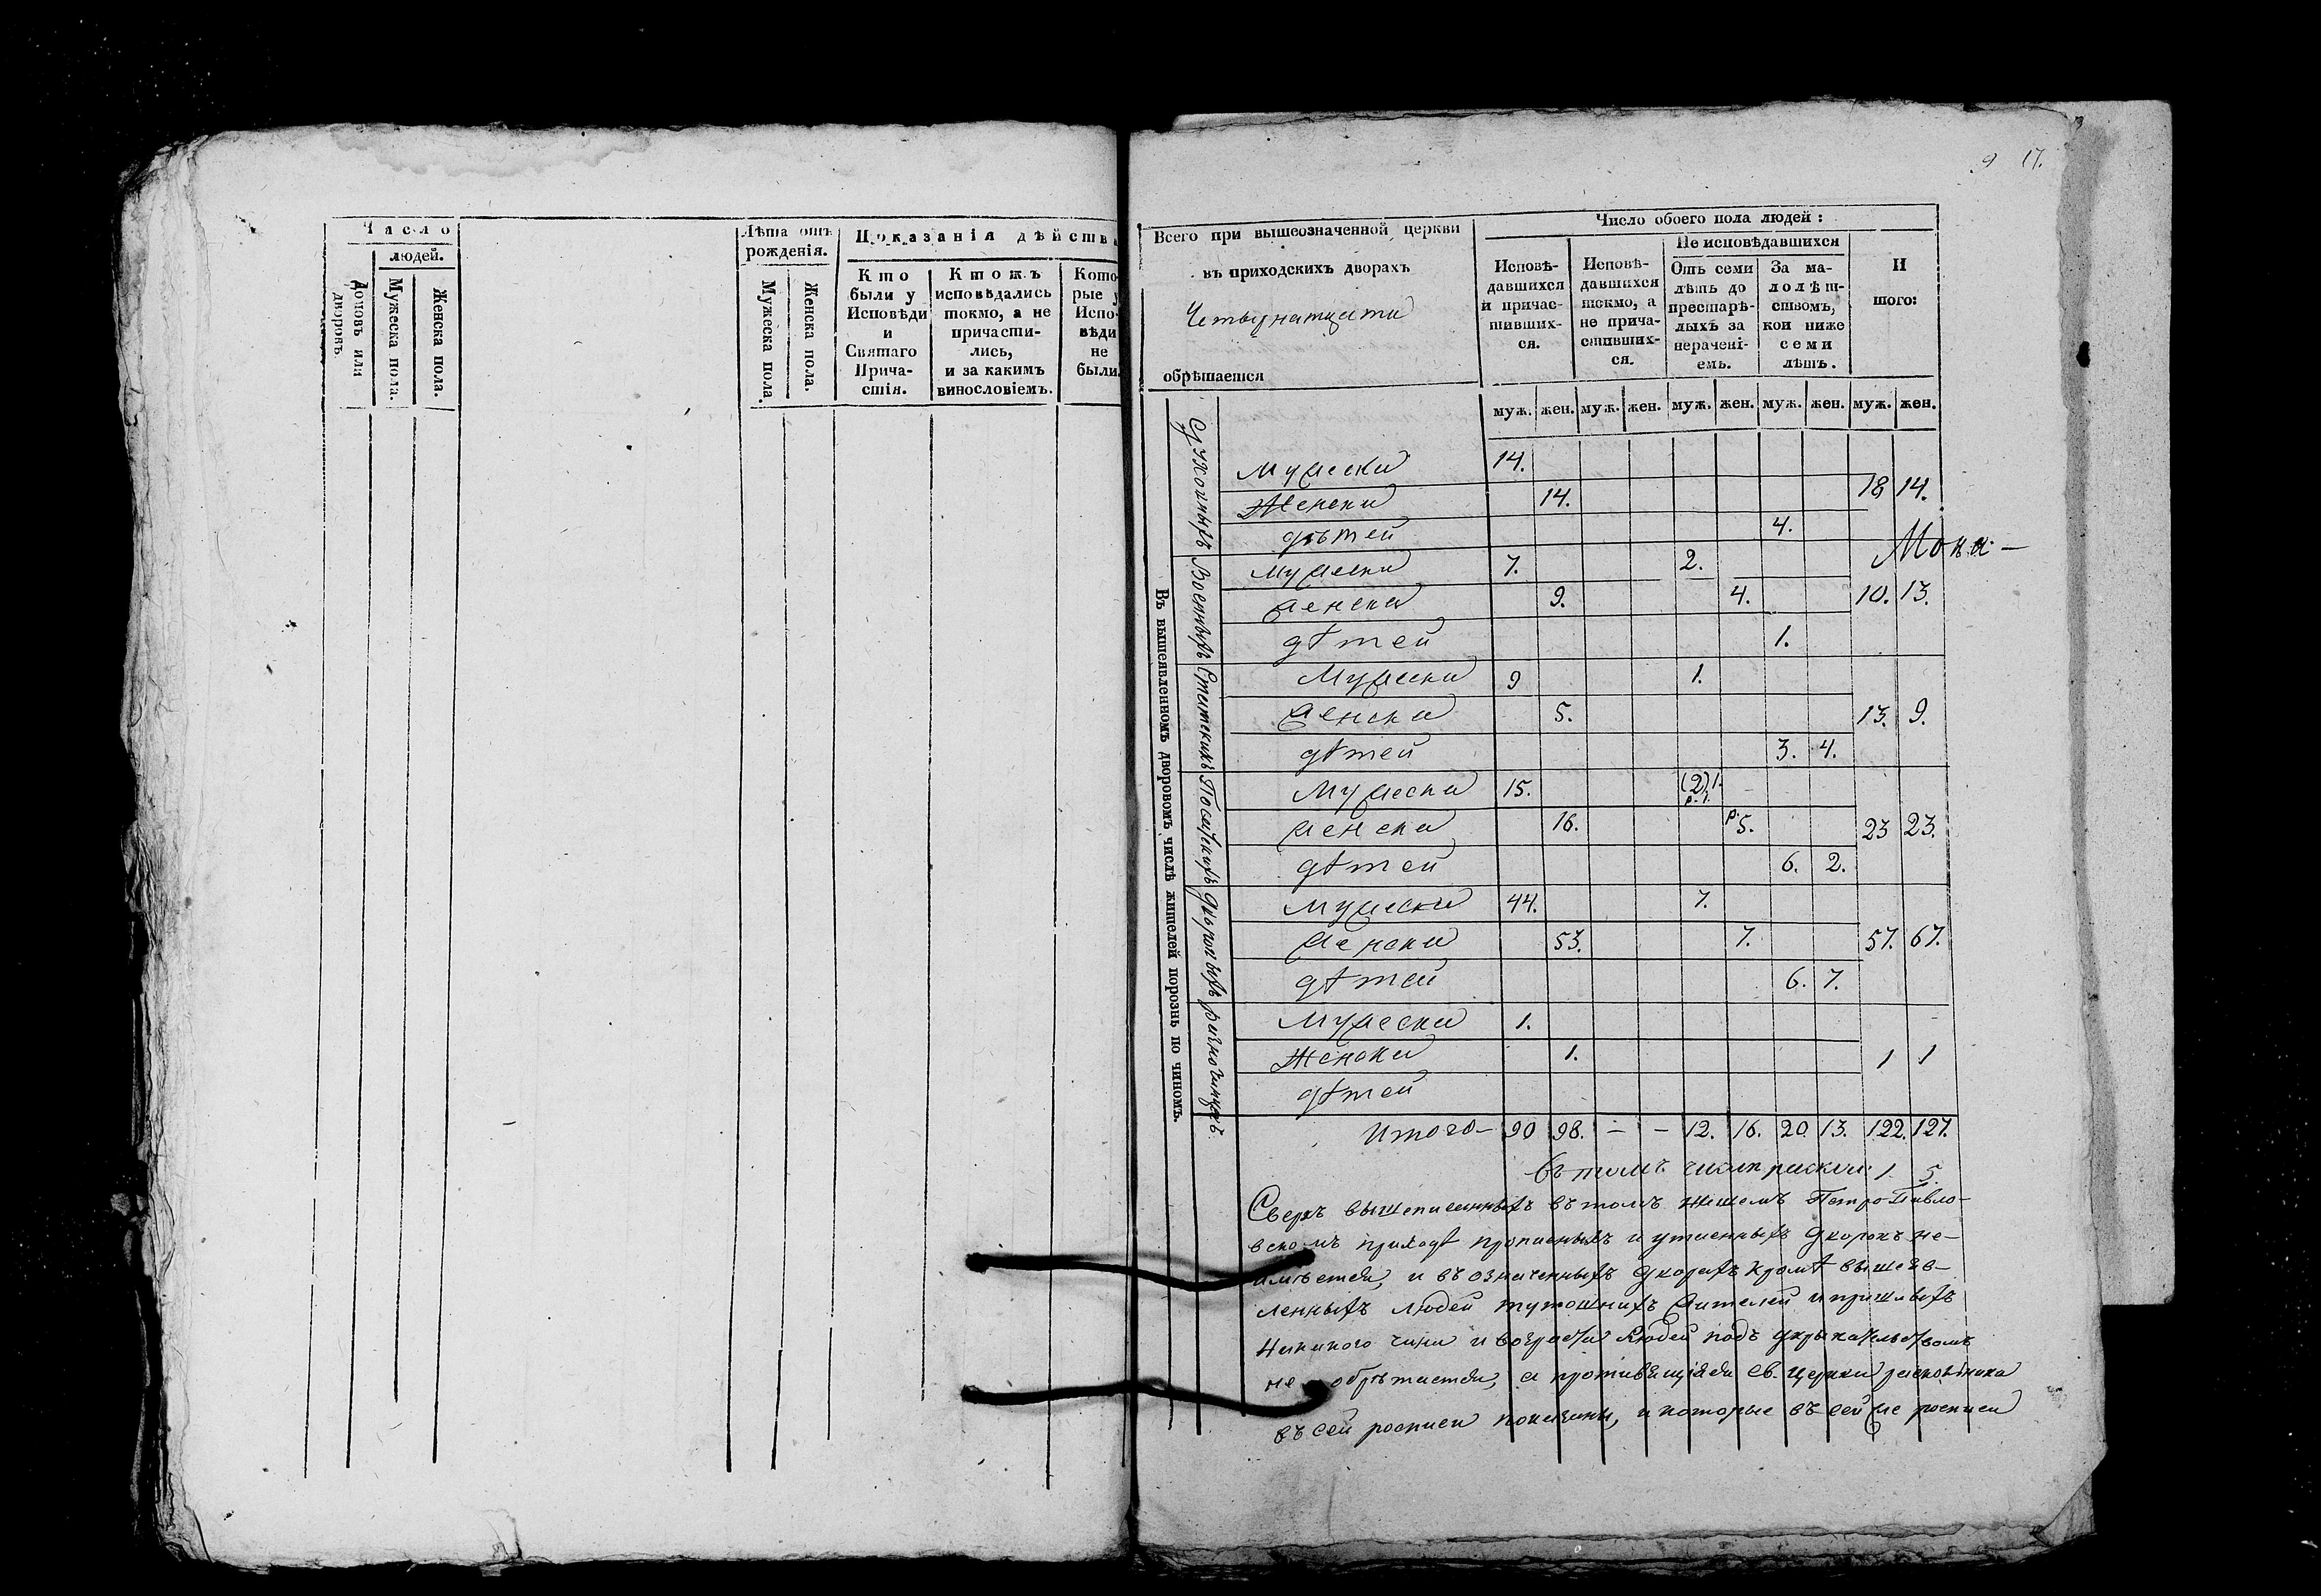 9 17.
Число
людей.
Домовъ или дворовъ
Мужеска пола.
Женска пола.
Лѣта отъ рожденія.
Мужеска пола.
Женска пола.
Показанія дѣйства
Кто были у Исповѣди и Святаго Причастія.
Ктожъ исповѣдались токмо, а не причастились, и за какимъ винословіемъ.
Которые у Исповѣди не были.
Всего при вышеозначенной церкви
въ приходскихъ дворахъ
Четырнатцати
обрѣтается
Число обоего пола людей:
Исповѣдавшихся и причастившихся.
Исповѣдавшихся токмо, а не причастившихся.
Не исповѣдавшихся
Отъ семи лѣтъ до престарѣлыхъ за нерачені-емъ.
За малолѣтствомъ, кои ниже семи лѣтъ.
Итого:
муж. жен. муж. жен. муж. жен. муж. жен. муж. жен.
Въ вышеявленномъ дворовомъ числѣ жителей порознь по чиномъ.
Мужеска 14.
Женска 14. 18 14.
дѣтей 4.
Мока-
Военныхъ
Мужеска 7. 2.
женска 9. 4. 10. 13.
дѣтей 1.
Статскихъ
Мужеска 9 1.
женска 5. 13. 9.
дѣтей 3. 4.
Мужеска 15. (2) 1. р. 1.
женска 16. р. 5. 23 23.
дѣтей 6. 2.
Дворовыхъ
Мужеска 44. 7.
женска 53. 7. 57. 67.
дѣтей 6. 7.
разночинцевъ
Мужеска 1.
Женска 1. 1 1
дѣтей
Итого- 90 98. - - 12. 16. 20. 13. 122. 127.
въ томъ числѣ раскол: 1 5.
Сверхъ вышеписанныхъ въ томъ нашемъ Петро-Павло-
вскомъ приходѣ прописныхъ и утаенныхъ дворовъ не-
имѣется, и въ означенныхъ дворахъ кромѣ вышеяв-
ленныхъ людей тутошнихъ жителей и пришлыхъ
никакого чина и возраста людей подъ укрывательствомъ
не обрѣтается, а противящіяся св. церкви раскольника
въ сей росписи показаны, и которые въ сей же росписи